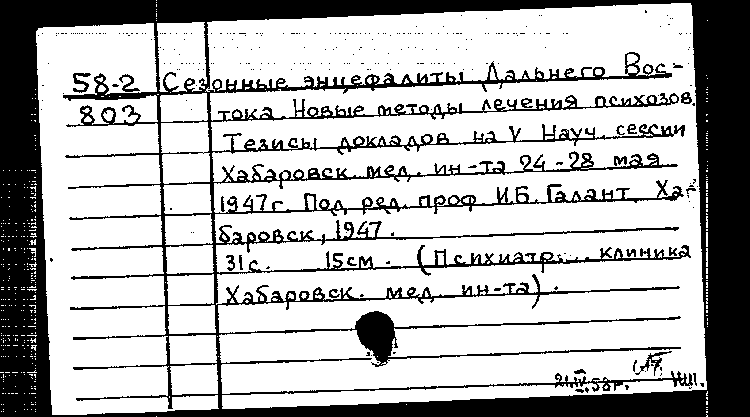 58-2 Сезонные энцефалиты Дальнего Вос-
803 тока. Новые методы лечения психозов.
Тезисы докладов на V Науч. сессии
Хабаровск. мед. ин-та 24-28 мая
1947г. Под ред. проф. И.Б. Галант. Ха-
баровск, 1947.
31с. 15см. (Психиатр... клиника
Хабаровск. мед. ин-та).
21.IV.58г.